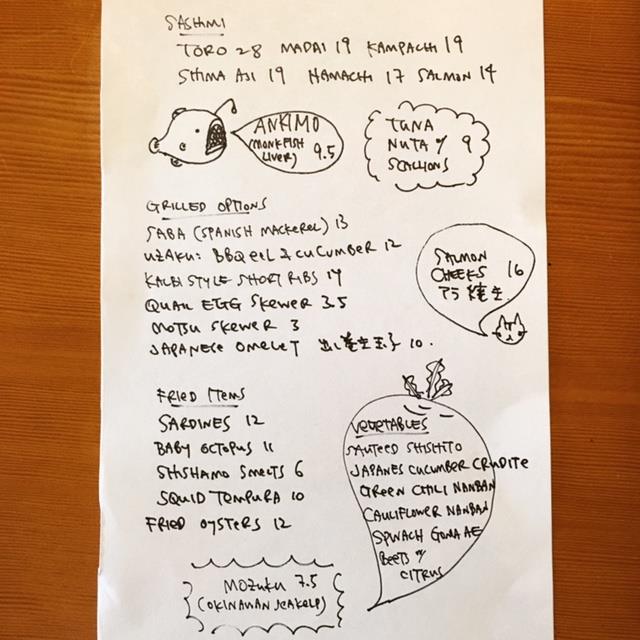 SASHIMI
TORO 28 MADAI 19 KAMPACHI 19
SHIMA AJI 19 HAMACHI 17 SALMON 14
ANKIMO
(MONKFISH
LIVER) 9.5
TUNA
NUTA w/ 9
SCALLIONS
GRILLED OPTIONS
SABA (SPANISH MACKEREL) 13
UZAKU: BBQ EEL & CUCUMBER 12
KALBI STYLE SHORT RIBS 14
QUAIL EGG SKEWER 3.5
MOTSU SKEWER 3
JAPANESE OMELET 出し巻き玉子 10.
SALMON
CHEEKS 16
アラ焼き
FRIED ITEMS
SARDINES 12
BABY OCTOPUS 11
SHISHAMO SMELTS 6
SQUID TEMPURA 10
FRIED OYSTERS 12
VEGETABLES
SAUTEED SHISHITO
JAPANES CUCUMBER CRUDITE
GREEN CHILI NANBAN
CAULIFLOWER NANBAN
SPINACH GOMA AE
BEETS w/
CITRUS
MOZUKU 7.5
(OKINAWAN SEAKELP)